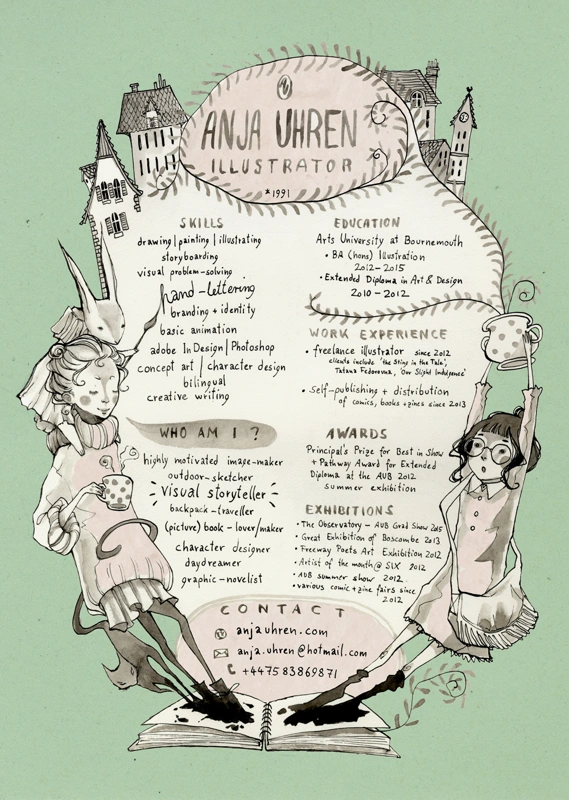 ANJA UHREN
ILLUSTRATOR
*1991
SKILLS
drawing | painting | illustrating
storyboarding
visual problem-solving
hand-lettering
branding + identity
basic animation
adobe InDesign | Photoshop
concept art | character design
bilingual
creative writing
WHO AM I ?
highly motivated image-maker
outdoor-sketcher
visual storyteller
backpack-traveller
(picture) book-lover/maker
character designer
daydreamer
graphic-novelist
EDUCATION
Arts University at Bournemouth
• BA (hons) Illustration
2012-2015
• Extended Diploma in Art & Design
2010-2012
WORK EXPERIENCE
• freelance illustrator since 2012
clients include 'the Sting in the Tale',
Tatana Fedorovna, 'Our Slight Indulgence'
• Self-publishing + distribution
of comics, books + zines since 2013
AWARDS
Principal's Prize for Best in Show
+ Pathway Award for Extended
Diploma at the AUB 2012
summer exhibition
EXHIBITIONS
• The Observatory - AUB Grad Show 2015
• Great Exhibition of Boscombe 2013
• Freeway Poets Art Exhibition 2012
• Artist of the month @ SIX 2012
• AUB summer show 2012.
• various comic + zine fairs since
2012
CONTACT
anjauhren.com
anja.uhren@hotmail.com
+447583869871